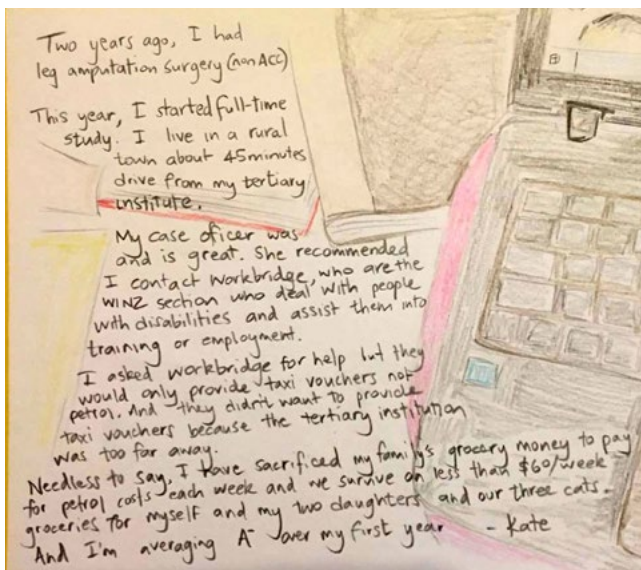 Two years ago, I had
leg amputation surgery (non ACC)
This year, I started full-time
study. I live in a rural
town about 45minutes
drive from my tertiary
institute.
My case oficer was
and is great. She recommended
I contact Workbridge, who are the
WINZ section who deal with people
with disabilities and assist them into
training or employment.
I asked workbridge for help but they
would only provide taxi vouchers not
petrol. And they didn't want to provide
taxi vouchers because the tertiary institution
was too far away.
Needless to say, I have sacrificed my family's grocery money to pay
for petrol costs each week and we survive on less than $60/week
groceries for myself and my two daughters and our three cats.
And I'm averaging A- over my first year - Kate